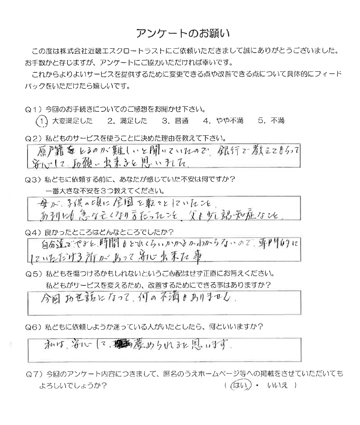 アンケートのお願い
この度は株式会社近畿エスクロートラストにご依頼いただきまして誠にありがとうございました。
お手数かと存じますが、アンケートにご協力いただければ幸いです。
これからよりよいサービスを提供するために変更できる点や改善できる点について具体的にフィード
バックをいただけたら嬉しいです。
Q1）今回のお手続きについてのご感想をお聞かせ下さい。
1．大変満足した 2．満足した 3．普通 4．やや不満 5．不満
Q2）私どものサービスを使うことに決めた理由を教えて下さい。
原戸籍をとるのが難しいと聞いていたので、銀行で教えてもらって
安心してお願い出来ると思いました。
Q3）私どもに依頼する前に、あなたが感じていた不安は何ですか？
一番大きな不安を3つ教えてください。
母が、子供の頃に全国を転々としていたこと、
あまりにも急な亡くなり方だったこと、父も少し認知症なこと
Q4）良かったところはどんなところでしたか？
自分達でやると、時間もどれくらいかかるかわからないので、専門的に
していただける所があって安心出来た事
Q5）私どもを傷つけるかもしれないというご心配はせず正直にお答えください。
私どもがサービスを変えるため、改善するためにできる事はありますか？
今回お世話になって、何の不満もありません。
Q6）私どもに依頼しようか迷っている人がいたとしたら、何といいますか？
私は、安心して、薦められると思います。
Q7）今回のアンケート内容につきまして、匿名のうえホームページ等への掲載をさせていただいても
よろしいでしょうか？ （はい ・ いいえ）